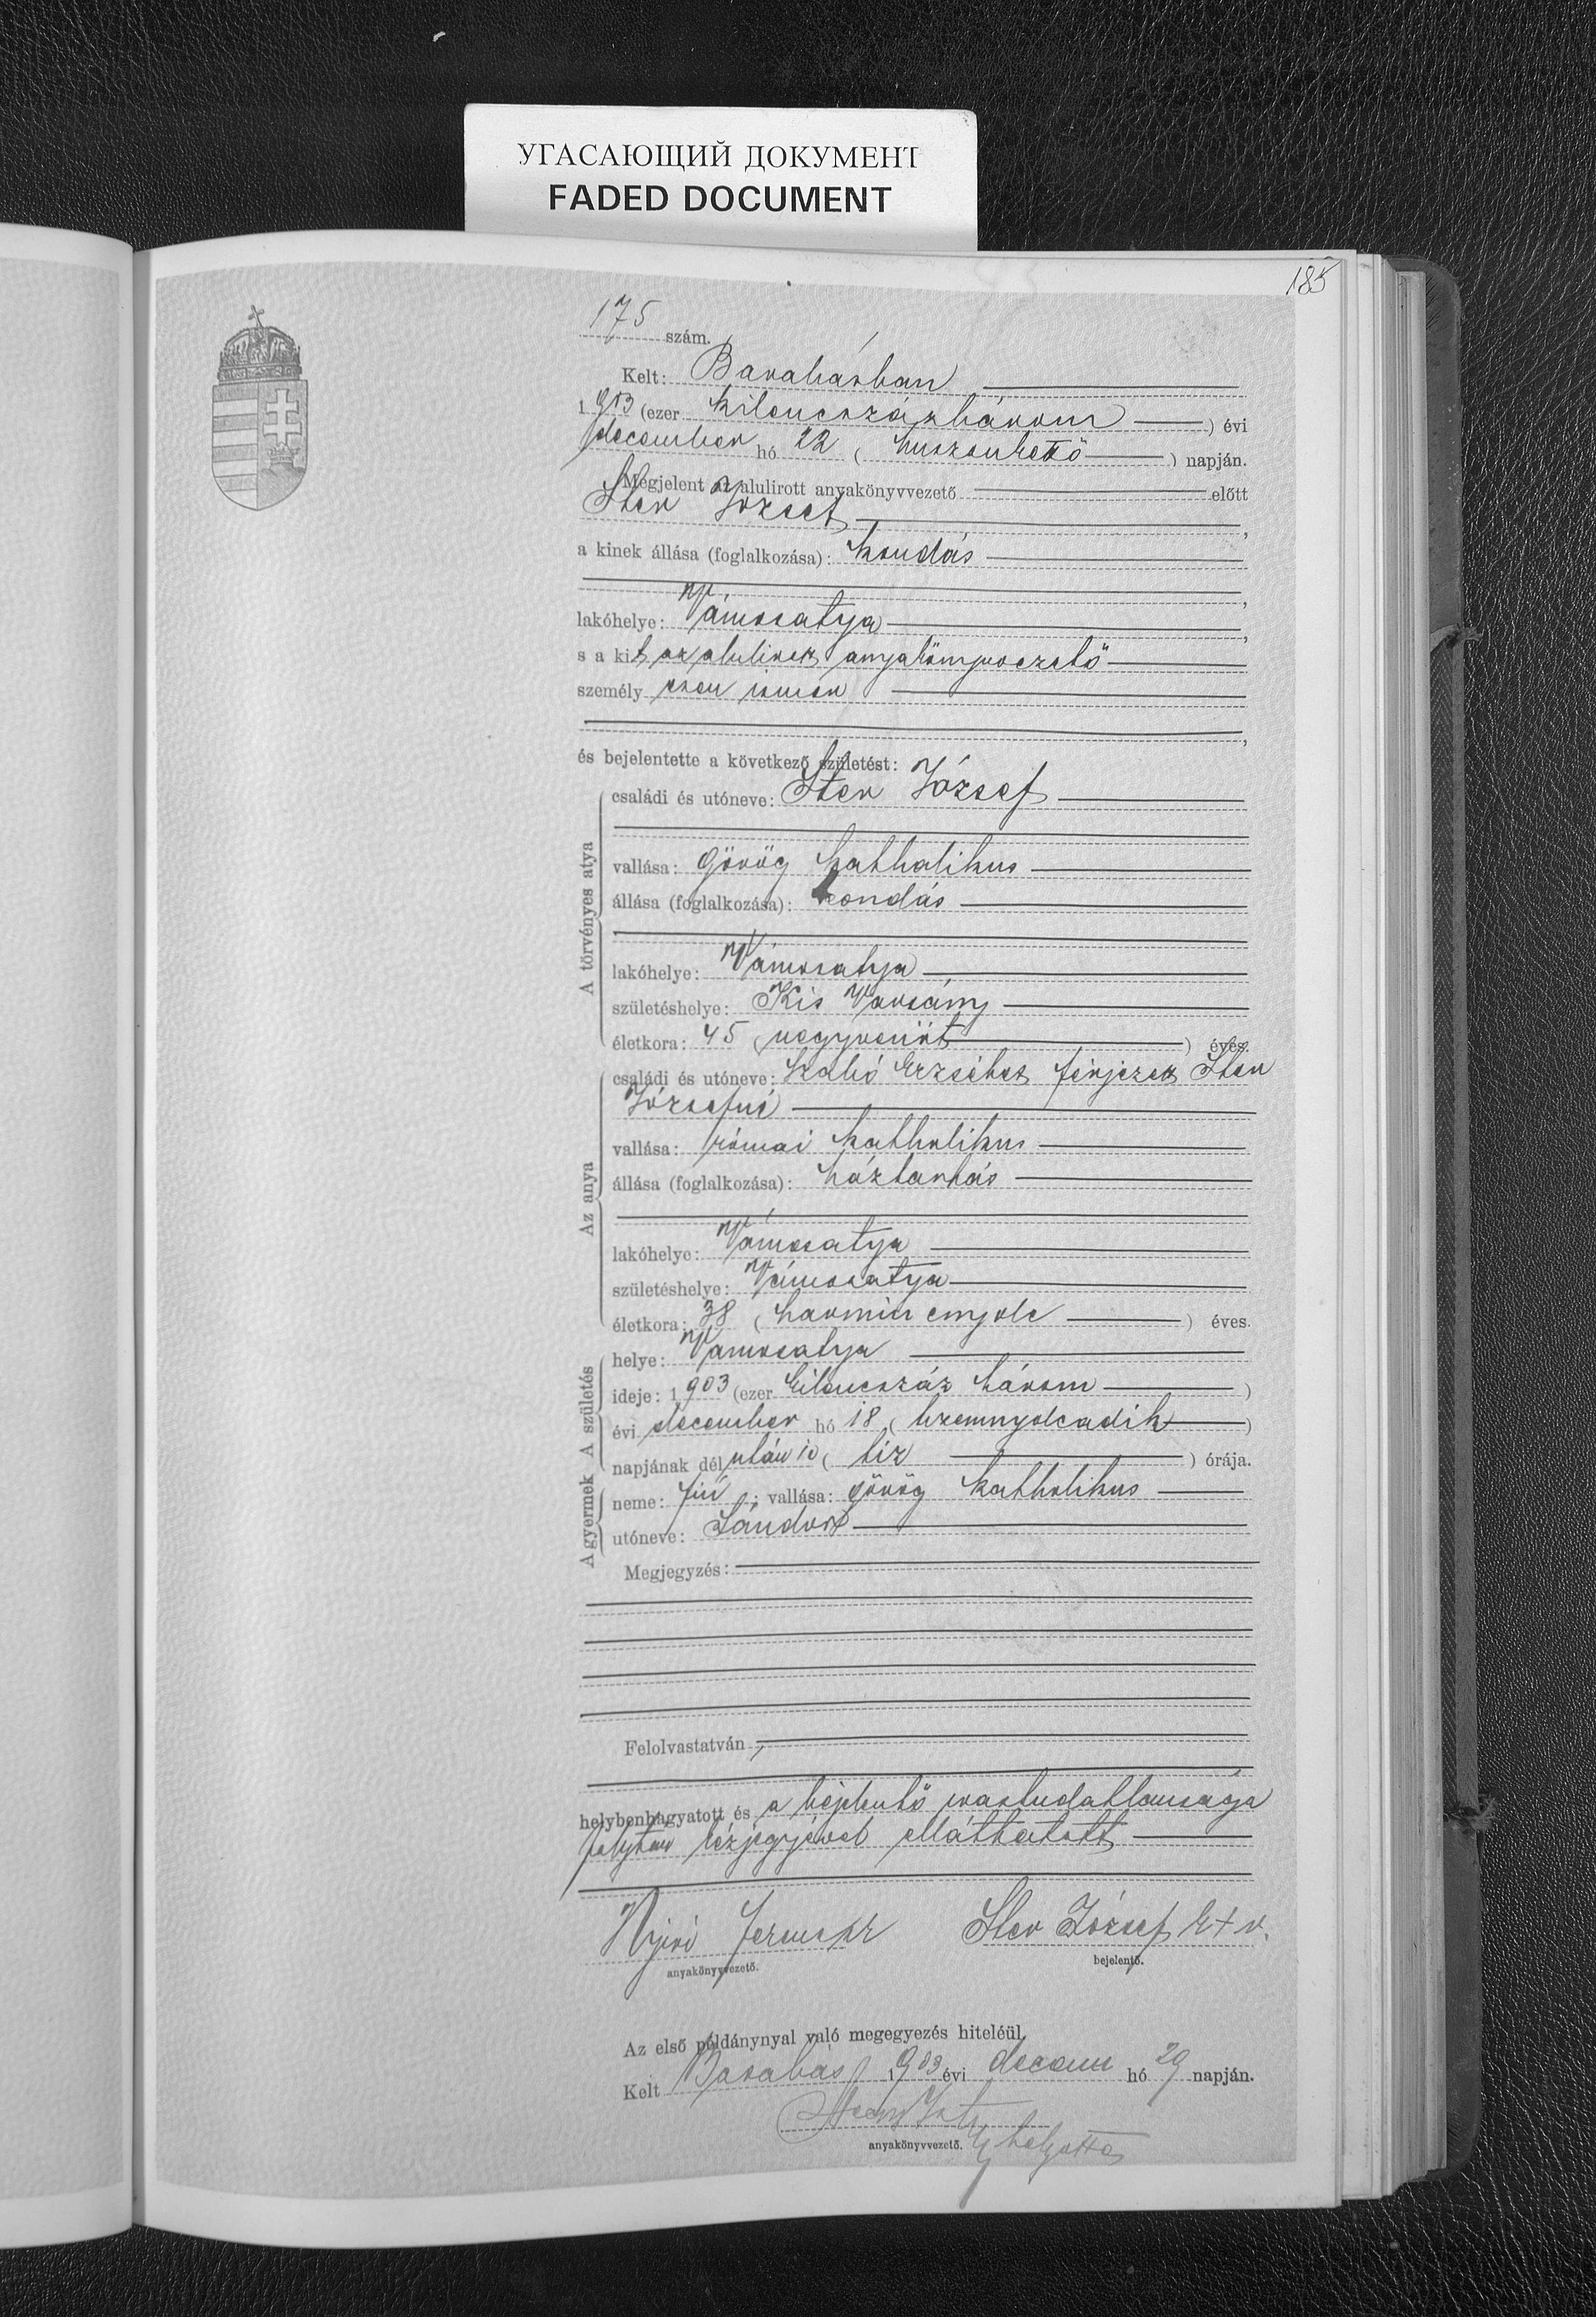 УГАСАЮЩИЙ ДОКУМЕНТ
FADED DOCUMENT
185
175 szám.
Kelt: Barabásban
1 903 (ezer kilenczszázhárom ) évi
december hó 22 ( huszonkettő ) napján.
Megjelent az alulirott anyakönyvvezető előtt
Ster József,
a kinek állása (foglalkozása): kondás
,
lakóhelye: Vámosatya,
s a kit az alulirott anyakönyvvezető
személyesen ismer
,
és bejelentette a következő születést:
A törvényes atya
családi és utóneve: Ster József
vallása: görög katholikus
állása (foglalkozása): kondás
lakóhelye: Vámosatya
születéshelye: Kis Varsány
életkora: 45 (negyvenöt ) éves.
Az anya
családi és utóneve: Szabó Erzsébet férjezett Ster
Józsefné
vallása: római katholikus
állása (foglalkozása): háztartás
lakóhelye: Vámosatya
születéshelye: Vámosatya
életkora: 38 ( harmincnyolc ) éves.
A születés
helye: Vámosatya
ideje: 1 903 (ezer kilencszáz három )
évi december hó 18 ( tizennyolcadik )
napjának dél után 10 ( tiz ) órája.
A gyermek
neme: fiú ; vallása: görög katholikus
utóneve: Sándor
Megjegyzés:
Felolvastatván,
helybenhagyatott és a bejelentő irástudatlansága
folytán kézjegyével elláttatott
Nyiri Ferencz Ster József k+v.
anyakönyvvezető. bejelentő.
Az első példánynyal való megegyezés hiteléül.
Kelt Barabás, 1903 évi decem hó 29 napján.
anyakönyvvezető.